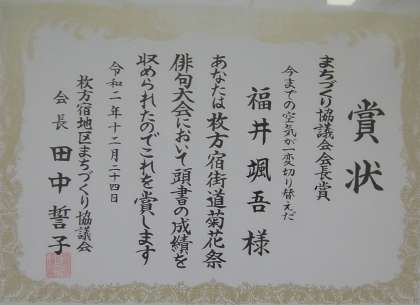 賞状
まちづくり協議会会長賞
今までの空気が一変切り替えだ
福井颯吾様
あなたは枚方宿街道菊花祭
俳句大会において頭書の成績を
収められたのでこれを賞します
令和二年十二月二十四日
枚方宿地区まちづくり協議会
会長 田中誓子